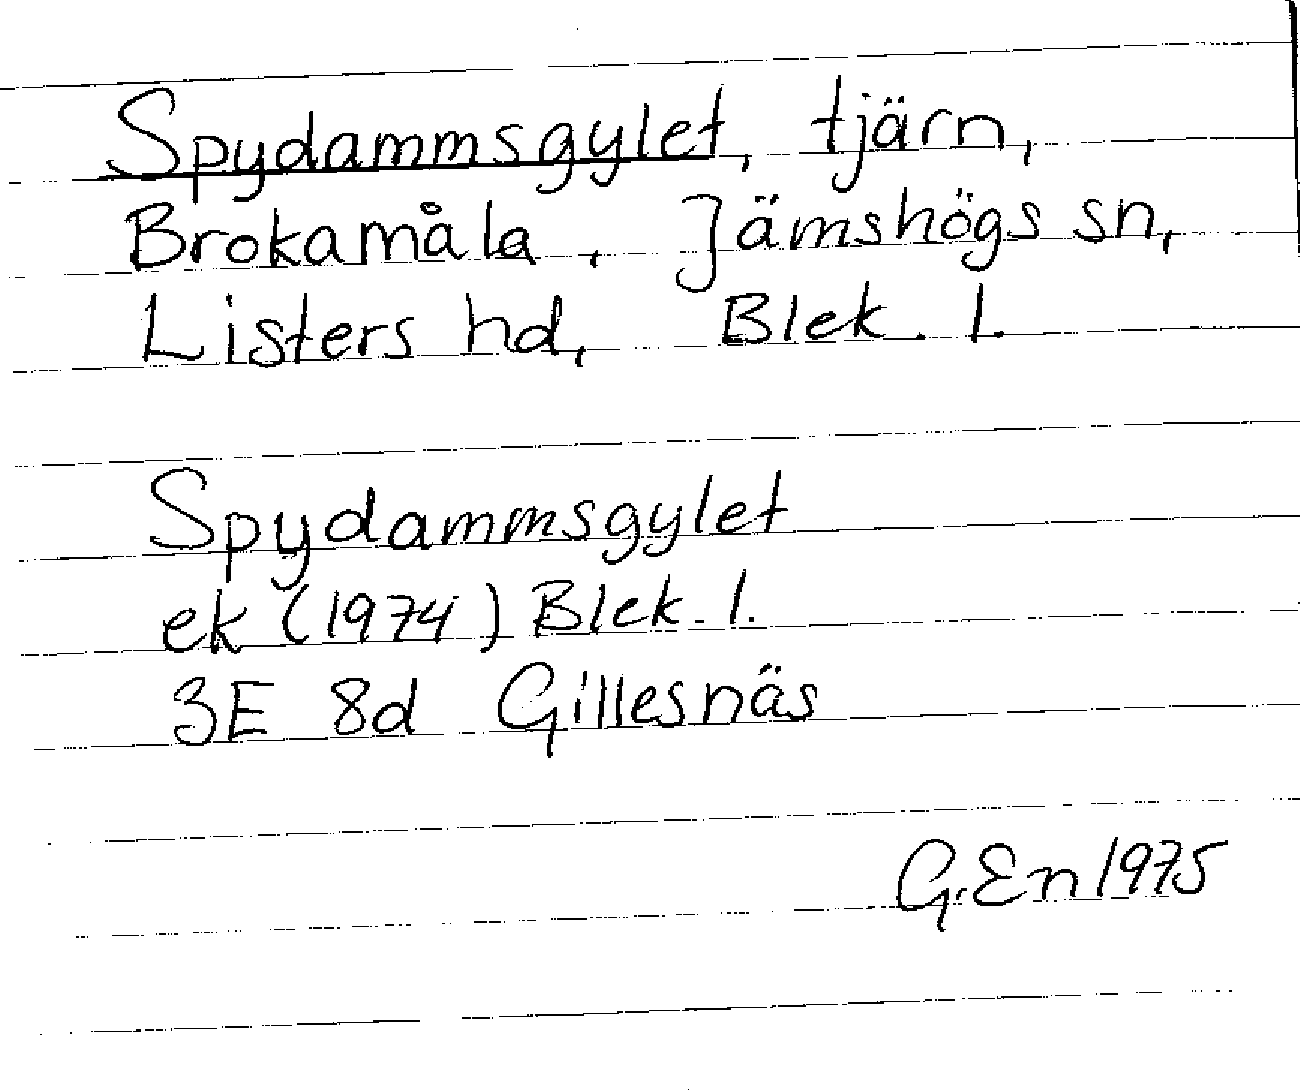 Spydammsgylet, tjärn,
Brokamåla, Jämshögs sn,
Listers hd, Blek. l.
Spydammsgylet
ek (1974) Blek. l.
3E 8d Gillesnäs
G.En 1975